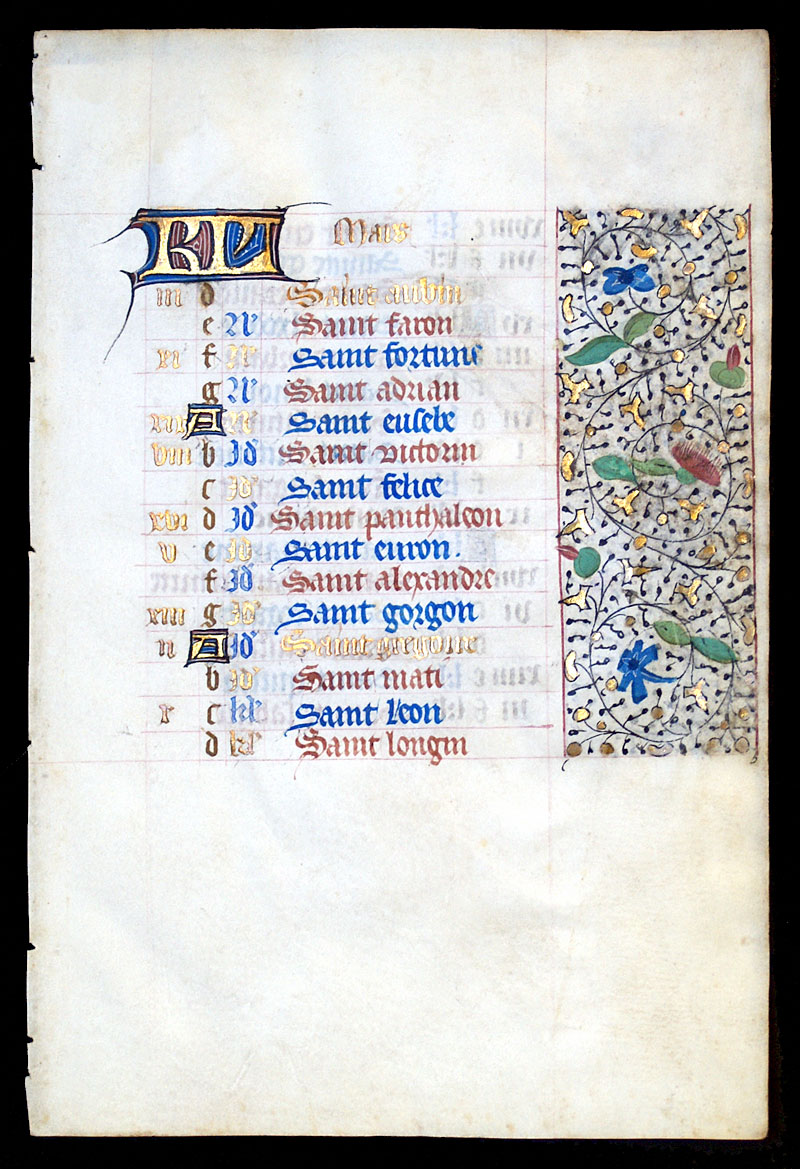 KL Mars
iii d Saint aubin
e N Saint faron
xi f N Saint fortune
g N Saint adrian
xix A N Saint eusebe
viii b Id Saint victorin
c Id Saint felice
xvi d Id Saint panthaleon
v e Id Saint euron.
f Id Saint alexandre
xiii g Id Saint gorgon
ii A Id Saint gregoire
b Id Saint mati
x c kl Saint leon
d kl Saint longin